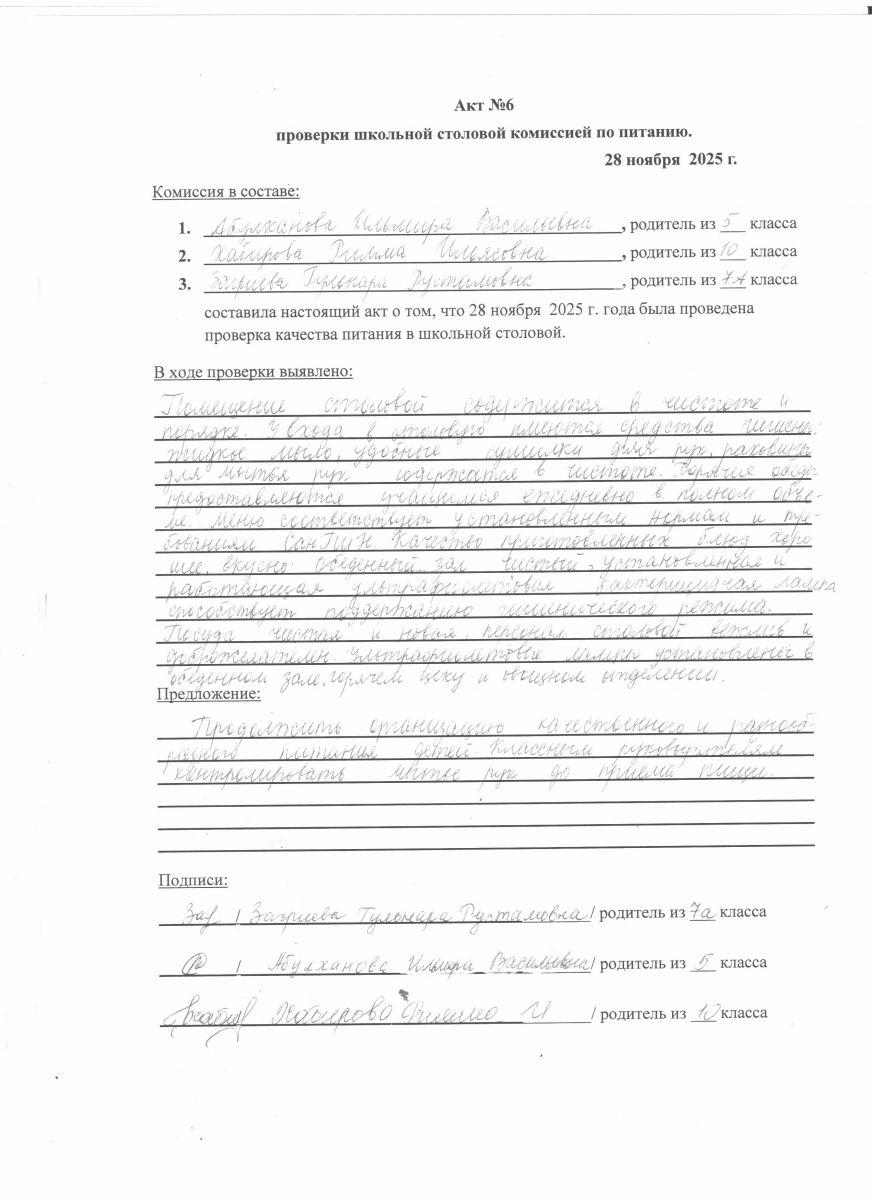 Акт №6
проверки школьной столовой комиссией по питанию.
28 ноября 2025 г.
Комиссия в составе:
1. Абулханова Ильмира Васильевна, родитель из 5 класса
2. Хабирова Римма Ильясовна, родитель из 10 класса
3. Загриева Гульнара Рустамовна, родитель из 7А класса
составила настоящий акт о том, что 28 ноября 2025 г. года была проведена
проверка качества питания в школьной столовой.
В ходе проверки выявлено:
Помещение столовой содержится в чистоте и
порядке. У входа в столовую имеются средства гигиены:
жидкое мыло, удобные сушилки для рук, раковины
для мытья рук содержатся в чистоте. Горячие обеды
предоставляются учащимся ежедневно в полном объе-
ме. Меню соответствует установленным нормам и тре-
бованиям СанПиН. Качество приготовленных блюд хоро
шее, вкусно. Обеденный зал чистый, установленная и
работающая ультрафиолетовая бактерицидная лампа
способствует поддержанию гигиенического режима.
Посуда чистая и новая, персонал столовой вежлив и
доброжелателен. Ультрафиолетовые лампы установлены в
обеденном зале, горячем цеху и овощном отделении.
Предложение:
Продолжить организацию качественного и разнооб-
разного питания детей. Классным руководителям
контролировать мытье рук до приема пищи.
Подписи:
Заг / Загриева Гульнара Рустамовна / родитель из 7а класса
/ Абулханова Ильмира Васильевна / родитель из 5 класса
Хабирова Римма И / родитель из 10 класса